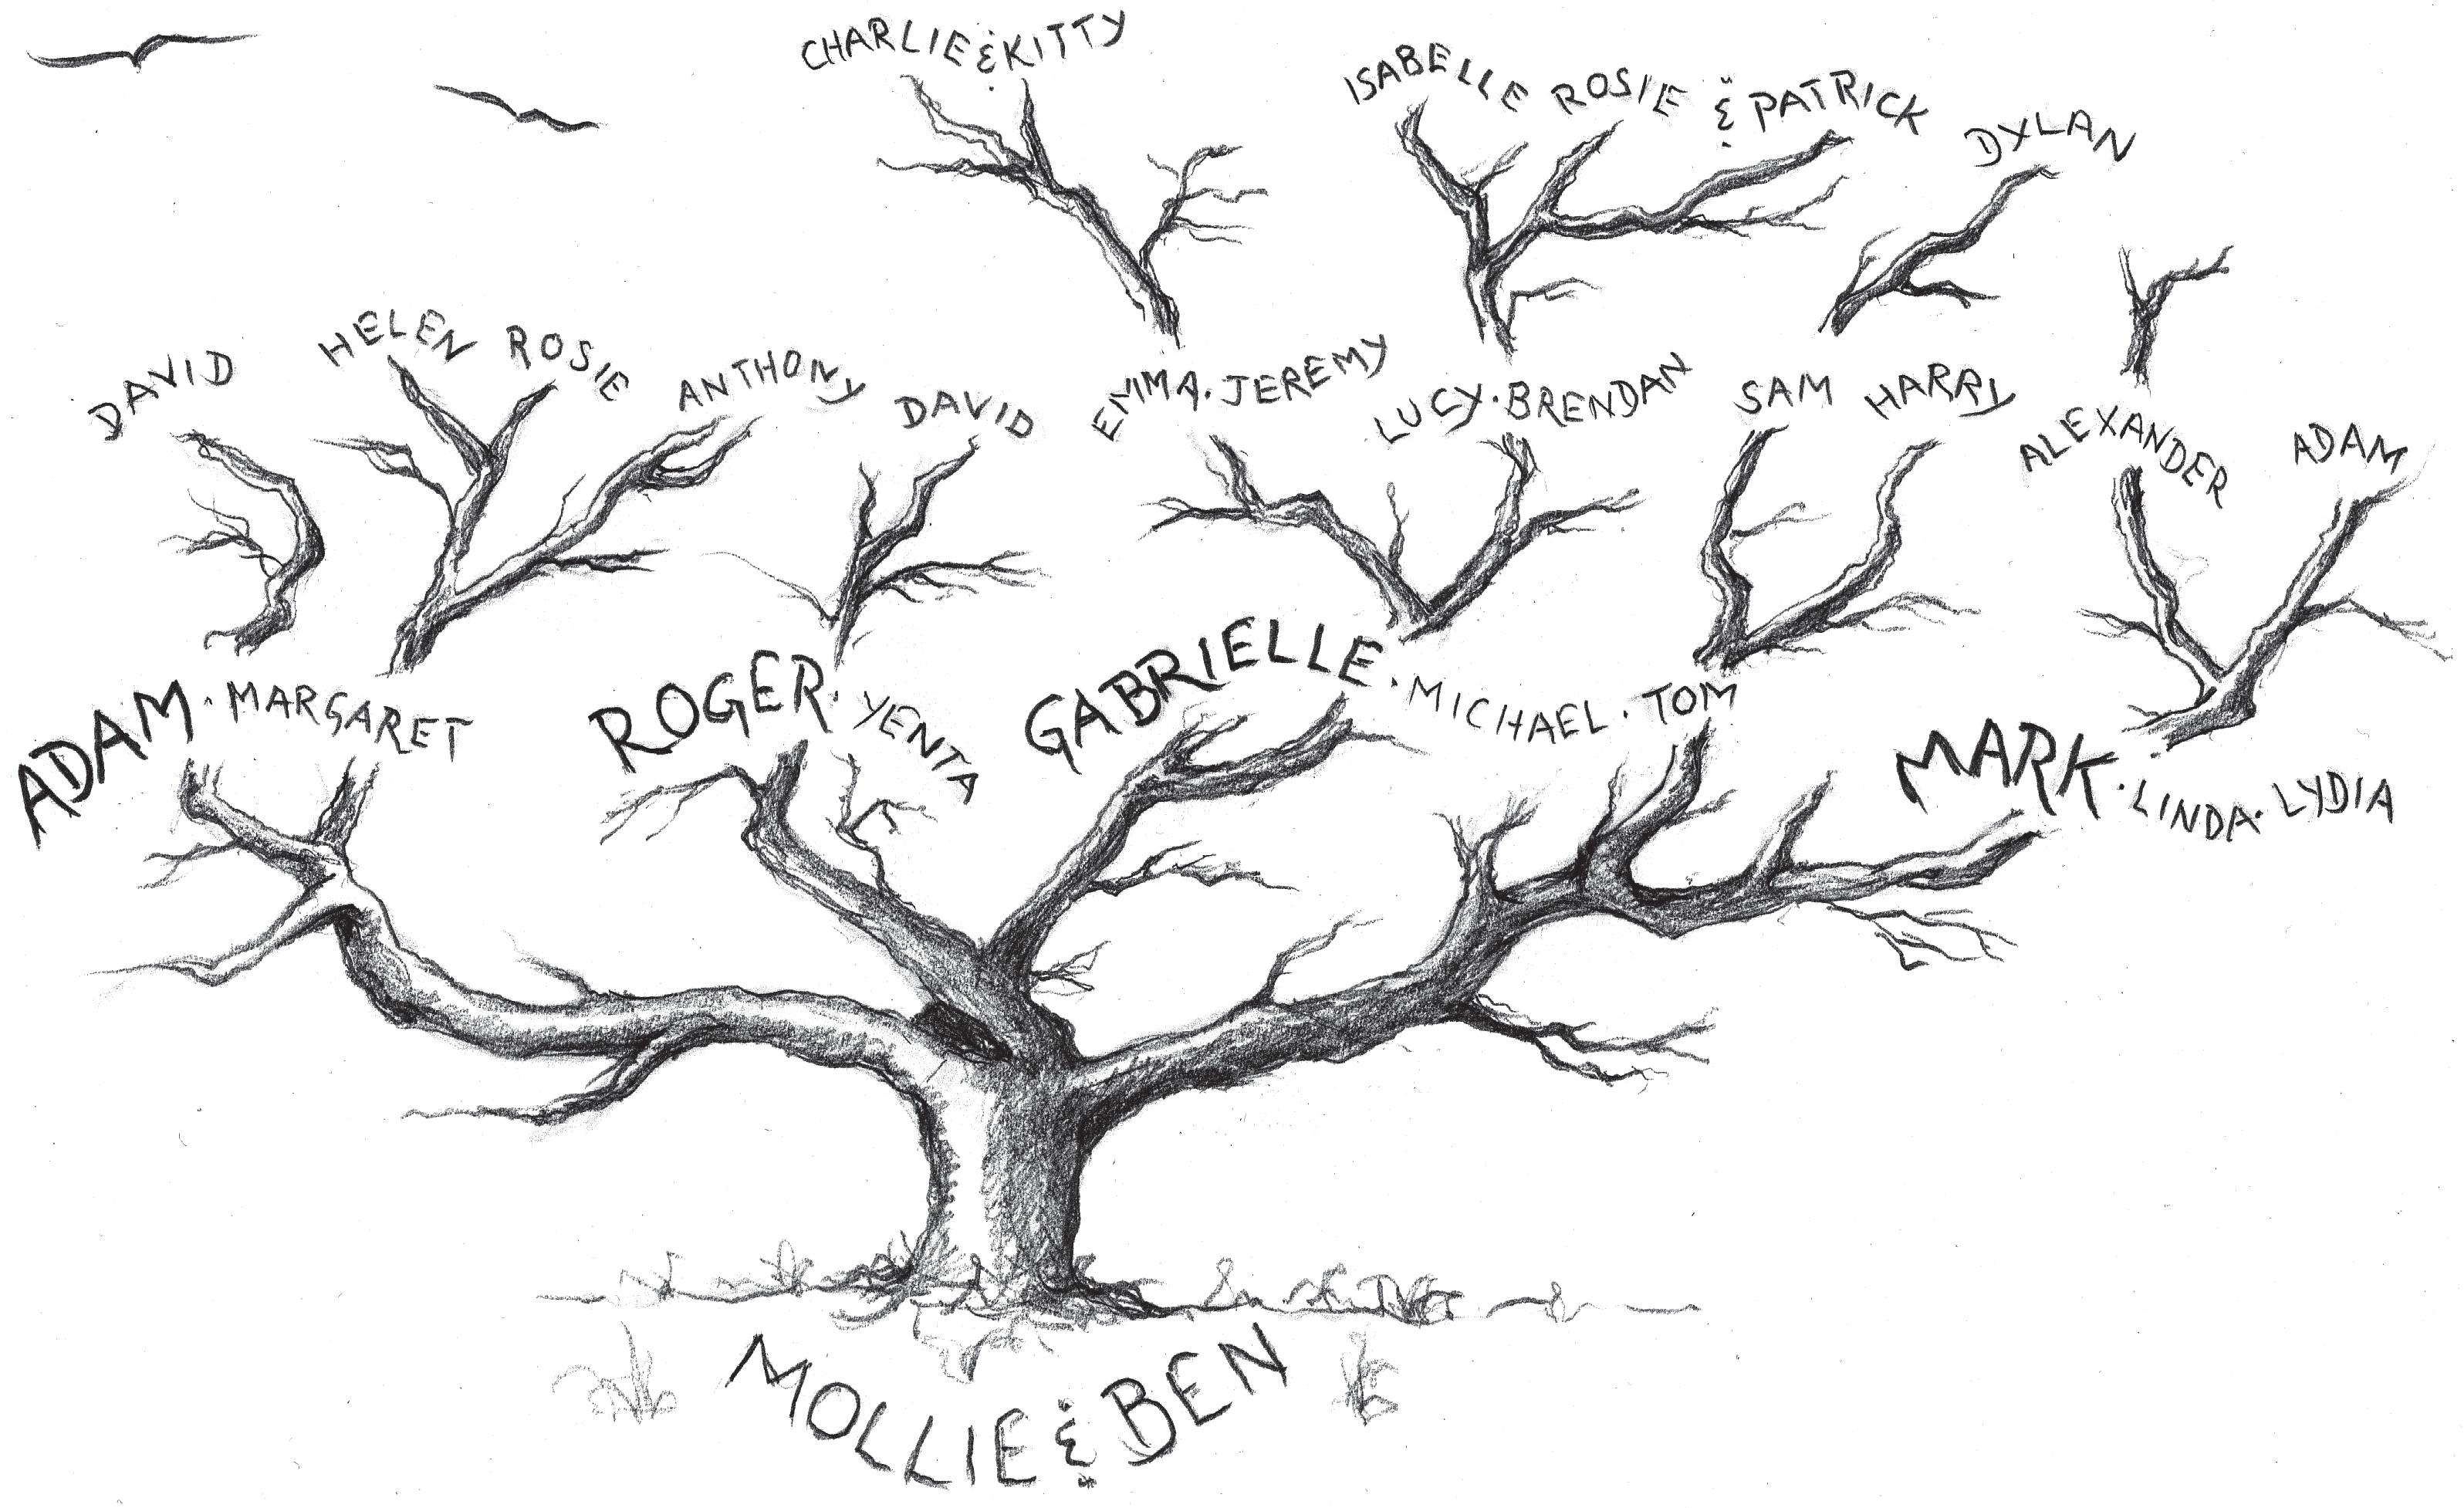 CHARLIE & KITTY
ISABELLE ROSIE & PATRICK
DYLAN
DAVID
HELEN
ROSIE
ANTHONY
DAVID
EMMA · JEREMY
LUCY · BRENDAN
SAM
HARRY
ALEXANDER
ADAM
ADAM · MARGARET
ROGER · YENTA
GABRIELLE · MICHAEL · TOM
MARK · LINDA · LYDIA
MOLLIE & BEN